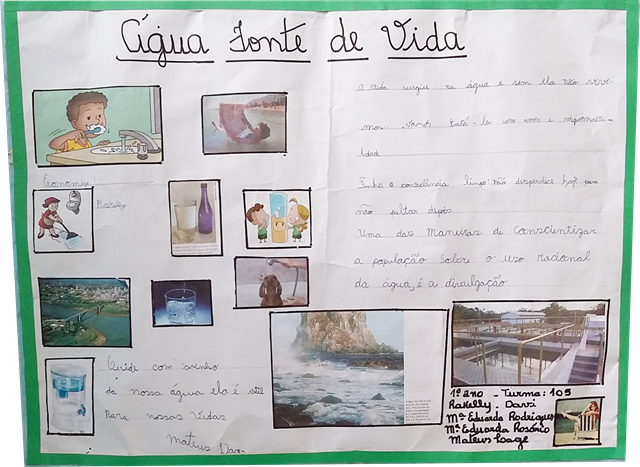 Água Fonte de Vida
A vida surgiu na água e sem ela não vive-
mos. Vamos tratá-la com amor e responsabili-
dade
Tenha a consciência limpa não desperdice hoje para
não faltar depois
Uma das Maneiras de Conscientizar
a população sobre o uso racional
da água, é a divulgação.
Economize!
Rakelly
Cuide com carinho
da nossa água ela é útil
Para nossas Vidas
Mateus Davi
1º ano - Turma: 105
Rakelly - Davi
Mª Eduarda Rodrigues
Mª Eduarda Rosório
Mateus Loage